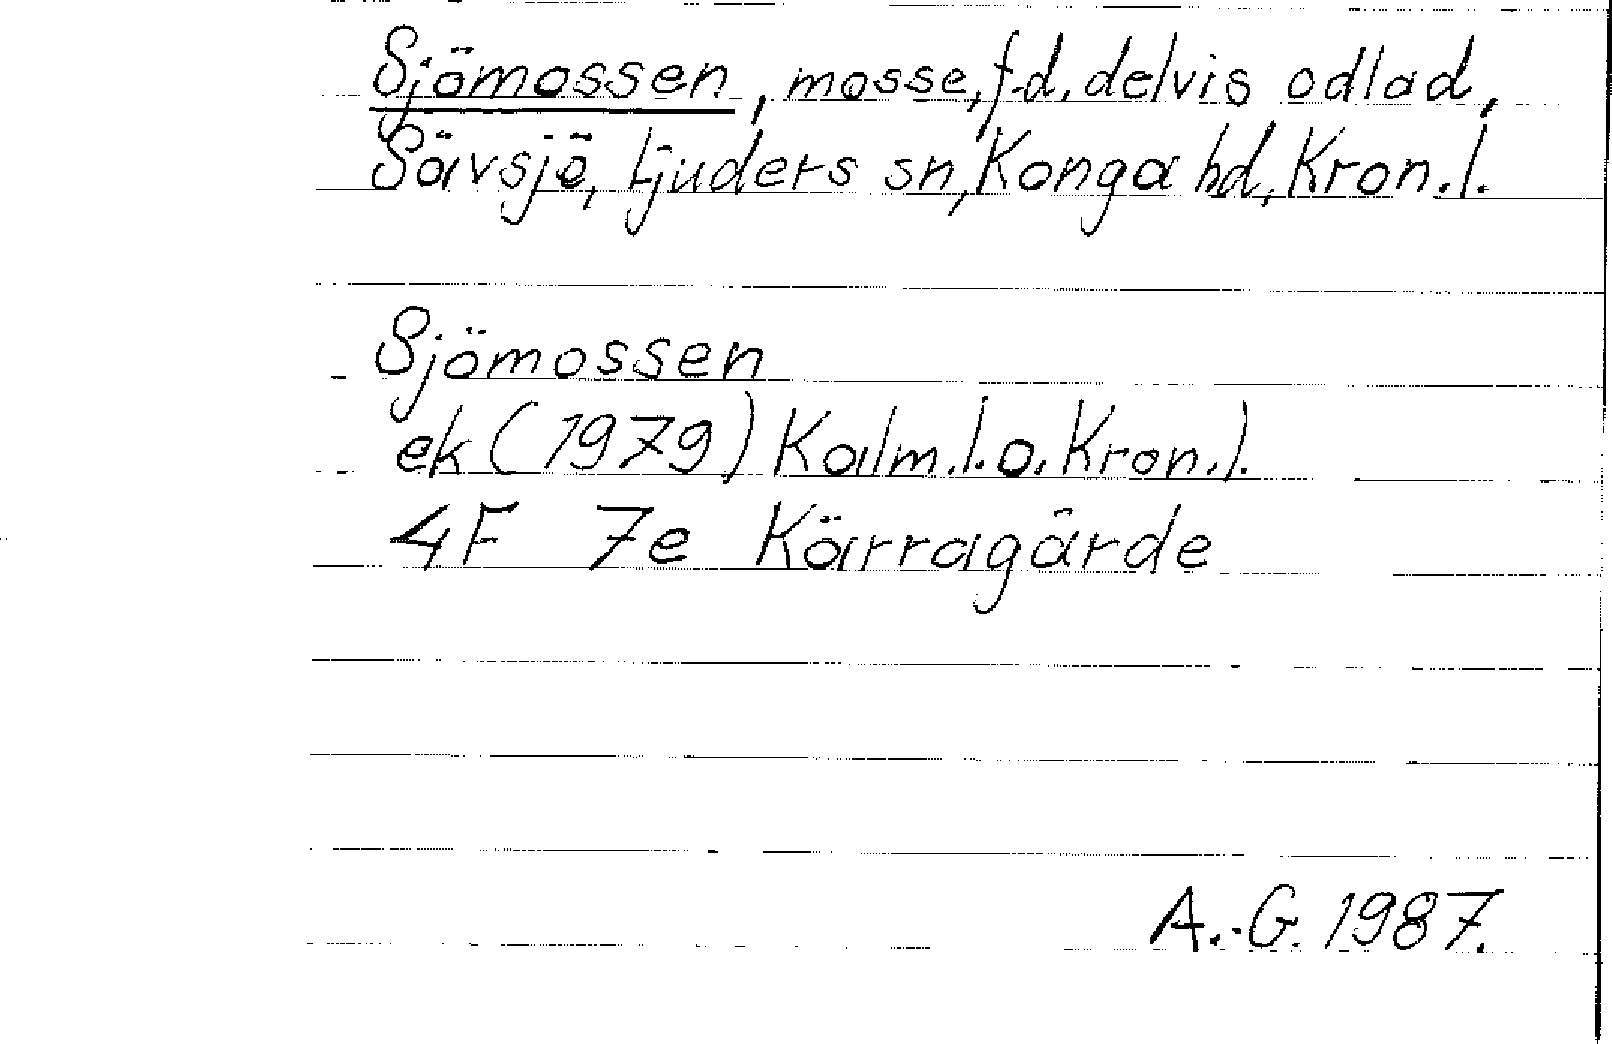 Sjömossen, mosse, f.d. delvis odlad,
Sävsjö, Ljuders sn, Konga hd, Kron.l.
Sjömossen
ek (1979) Kalm.l.o. Kron.l.
4F 7e Kärragärde
A.-G. 1987.